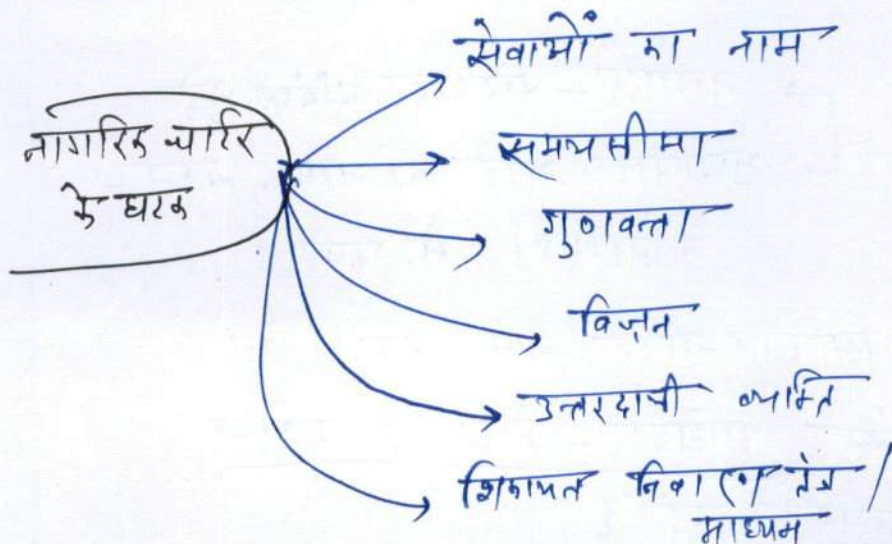 नागरिक चार्टर
के घटक
सेवाओं का नाम
समयसीमा
गुणवत्ता
विज़न
उत्तरदायी व्यक्ति
शिकायत निवारण तंत्र /
माध्यम